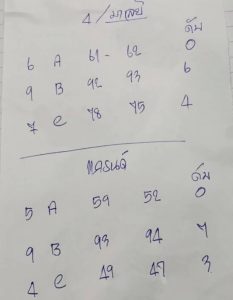 4/มาเลย์
ดับ
6 A 61 - 62 0
9 B 92 93 6
7 C 78 75 4
แคนนอน์
ดับ
5 A 59 52 0
9 B 93 94 7
4 C 49 47 3